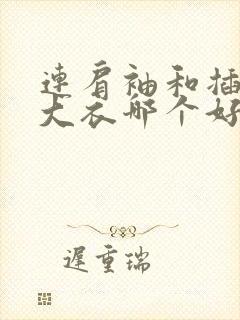 連肩袖和插
大衣哪个好
遲重瑞